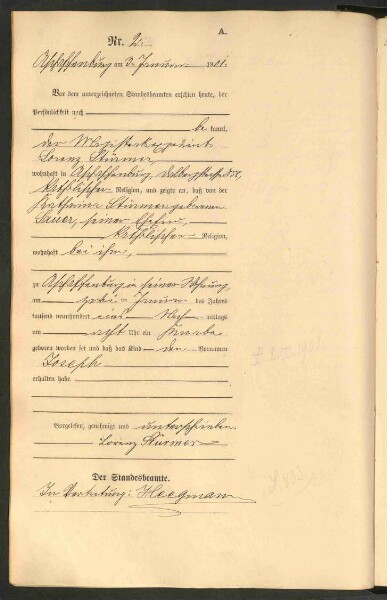 A.
Nr. 2.
Aschaffenburg am 3. Januar 1901.
Vor dem unterzeichneten Standesbeamten erschien heute, der
Persönlichkeit nach
be kannt,
der Magistratsoffiziant
Lorenz Stürmer,
wohnhaft in Aschaffenburg,
katholischer Religion, und zeigte an, daß von der
Katharina Stürmer geborenen
Sauer, seiner Ehefrau,
katholischer Religion,
wohnhaft bei ihm,
zu Aschaffenburg in seiner Wohnung
am zwei ten Januar des Jahres
tausend neunhundert eins Nach mittags
um acht Uhr ein Knabe
geboren worden sei und daß das Kind den Vornamen
Joseph
erhalten habe.
Vorgelesen, genehmigt und unterschrieben
Lorenz Stürmer
Der Standesbeamte.
In Vertretung: Heegmann